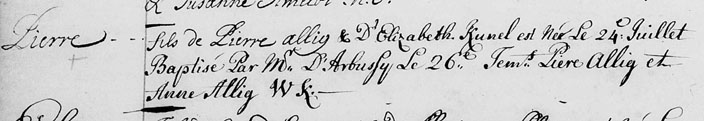 & Susanne
Pierre - - fils de Pierre allig & D'Elizabeth Kunel est Né Le 24.e Juillet
Baptisé Par Mr. D'Arbussy Le 26.e Tem.s Piere Allig et
Anne Allig W K:—